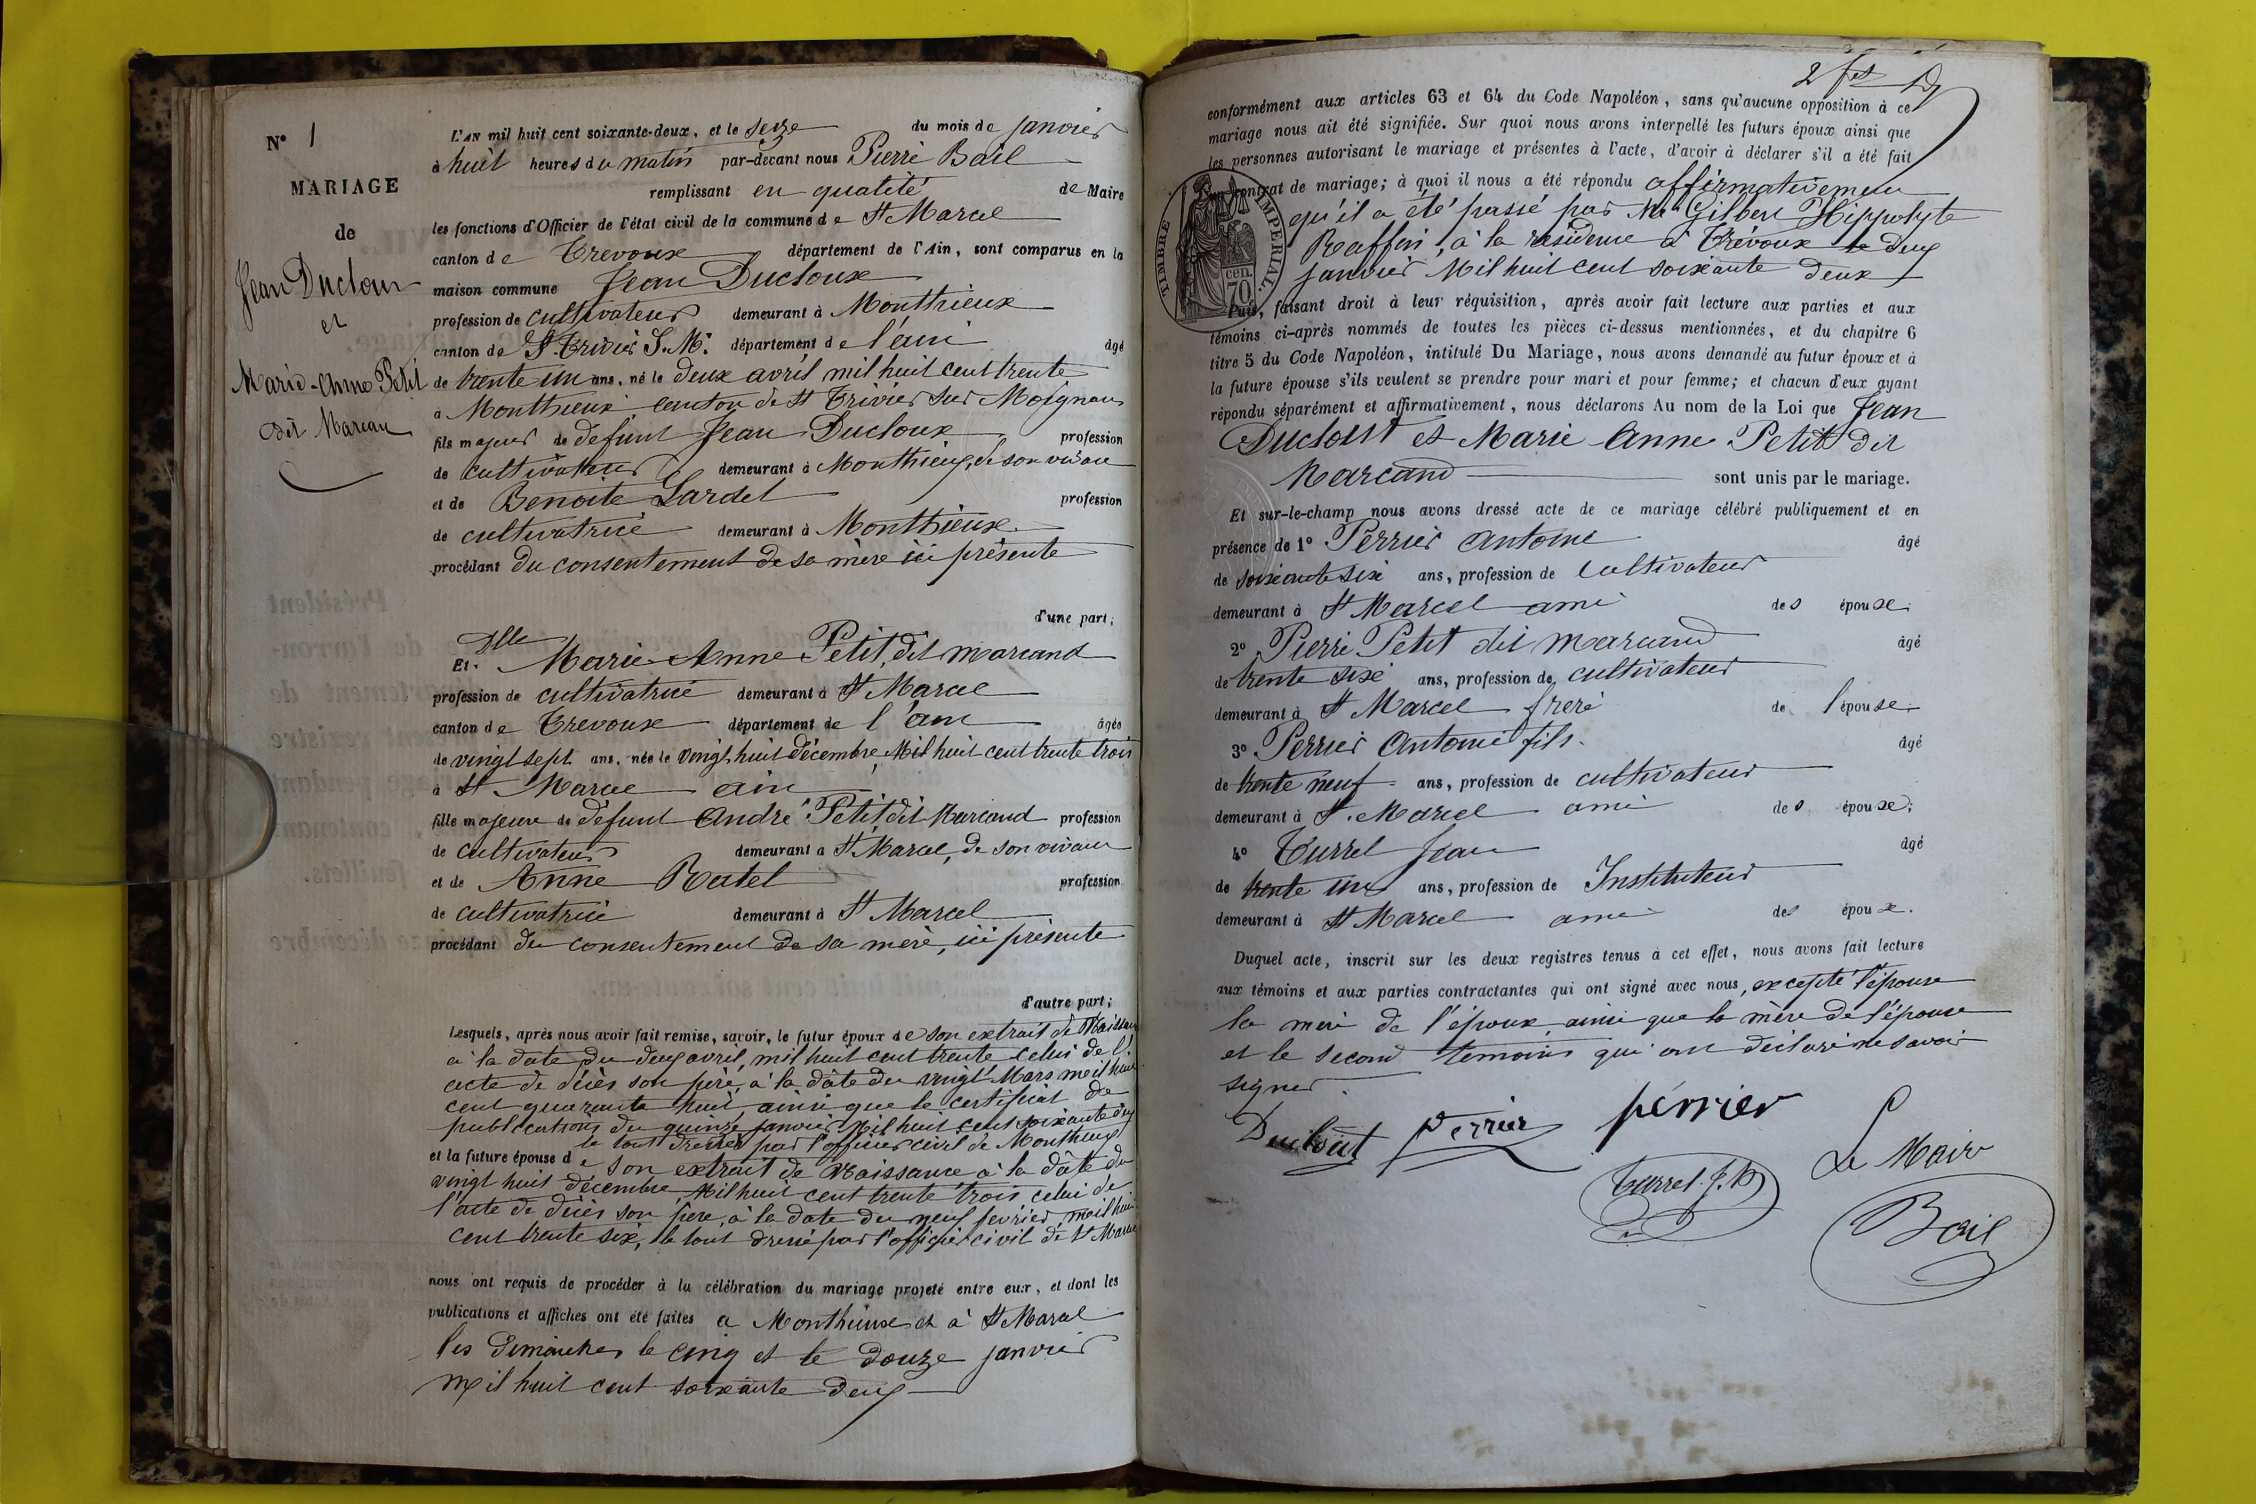 N° 1
MARIAGE
de
Jean Ducloux
et
Marie-Anne Petit
dit Marcand
L'AN mil huit cent soixante-deux, et le seize du mois de janvier
à huit heures du matin par-devant nous Pierre Bail
remplissant en qualité de Maire
les fonctions d'Officier de l'état civil de la commune de St Marcel
canton de Trevoux département de l'Ain, sont comparus en la
maison commune Jean Ducloux
profession de cultivateur demeurant à Monthieux
canton de St Trivier S. M. département de l'ain âgé
de trente un ans, né le deux avril mil huit cent trente
à Monthieux canton de St Trivier sur Moignans
fils majeur de défunt Jean Ducloux profession
de cultivateur demeurant à Monthieux, de son vivant
et de Benoite Lardet profession
de cultivatrice demeurant à Monthieux.
procédant du consentement de sa mère ici présente
d'une part;
Et. Dlle Marie-Anne Petit, dit marcand
profession de cultivatrice demeurant à St Marcel
canton de Trevoux département de l'ain âgée
de vingt sept ans, née le vingt huit décembre Mil huit cent trente trois
à St Marcel ain
fille majeure de défunt André Petit dit Marcand profession
de cultivateur demeurant à St Marcel, de son vivant
et de Anne Ratel profession
de cultivatrice demeurant à St Marcel
procédant du consentement de sa mère, ici présente
d'autre part;
Lesquels, après nous avoir fait remise, savoir, le futur époux de son extrait de Naissance
à la date du deux avril, mil huit cent trente celui de l'
acte de décès son père, à la date du vingt Mars mil huit
cent quarante huit, ainsi que le certificat de
publications du quinze janvier Mil huit cent soixante deux
le tout dressé par l'officier civil de Monthieux
et la future épouse de son extrait de Naissance à la date du
vingt huit décembre Mil huit cent trente trois, celui de
l'acte de décès son père, à la date du neuf février, mil huit
cent trente six, le tout dressé par l'officier civil de St Marcel
nous ont requis de procéder à la célébration du mariage projeté entre eux, et dont les
publications et affiches ont été faites à Monthieux et à St Marcel
les dimanches le cinq et le douze janvier
mil huit cent soixante deux
conformément aux articles 63 et 64 du Code Napoléon, sans qu'aucune opposition à ce
mariage nous ait été signifiée. Sur quoi nous avons interpellé les futurs époux ainsi que
les personnes autorisant le mariage et présentes à l'acte, d'avoir à déclarer s'il a été fait
un contrat de mariage; à quoi il nous a été répondu affirmativement
qu'il a été passé par Me Gilbert Hippolyte
Raffin, à la résidence à Trévoux le deux
janvier Mil huit cent soixante deux
TIMBRE IMPÉRIAL.
70 cen.
Puis, faisant droit à leur réquisition, après avoir fait lecture aux parties et aux
témoins ci-après nommés de toutes les pièces ci-dessus mentionnées, et du chapitre 6
titre 5 du Code Napoléon, intitulé Du Mariage, nous avons demandé au futur époux et à
la future épouse s'ils veulent se prendre pour mari et pour femme; et chacun d'eux ayant
répondu séparément et affirmativement, nous déclarons Au nom de la Loi que Jean
Ducloux et Marie Anne Petit dit
Marcand sont unis par le mariage.
Et sur-le-champ nous avons dressé acte de ce mariage célébré publiquement et en
présence de 1° Perrier Antoine âgé
de soixante six ans, profession de cultivateur
demeurant à St Marcel ami des époux;
2° Pierre Petit dit Marcand âgé
de trente six ans, profession de cultivateur
demeurant à St Marcel frère de l'épouse;
3° Perrier Antoine fils. âgé
de trente neuf ans, profession de cultivateur
demeurant à St. Marcel ami des époux;
4° Turrel Jean âgé
de trente un ans, profession de Instituteur
demeurant à St Marcel ami des époux.
Duquel acte, inscrit sur les deux registres tenus à cet effet, nous avons fait lecture
aux témoins et aux parties contractantes qui ont signé avec nous, excepté l'épouse
la mère de l'époux, ainsi que la mère de l'épouse
et le second témoins qui ont déclaré ne savoir
signer.
Ducloux perrier perrier
Turrel. J. Le Maire
Bail